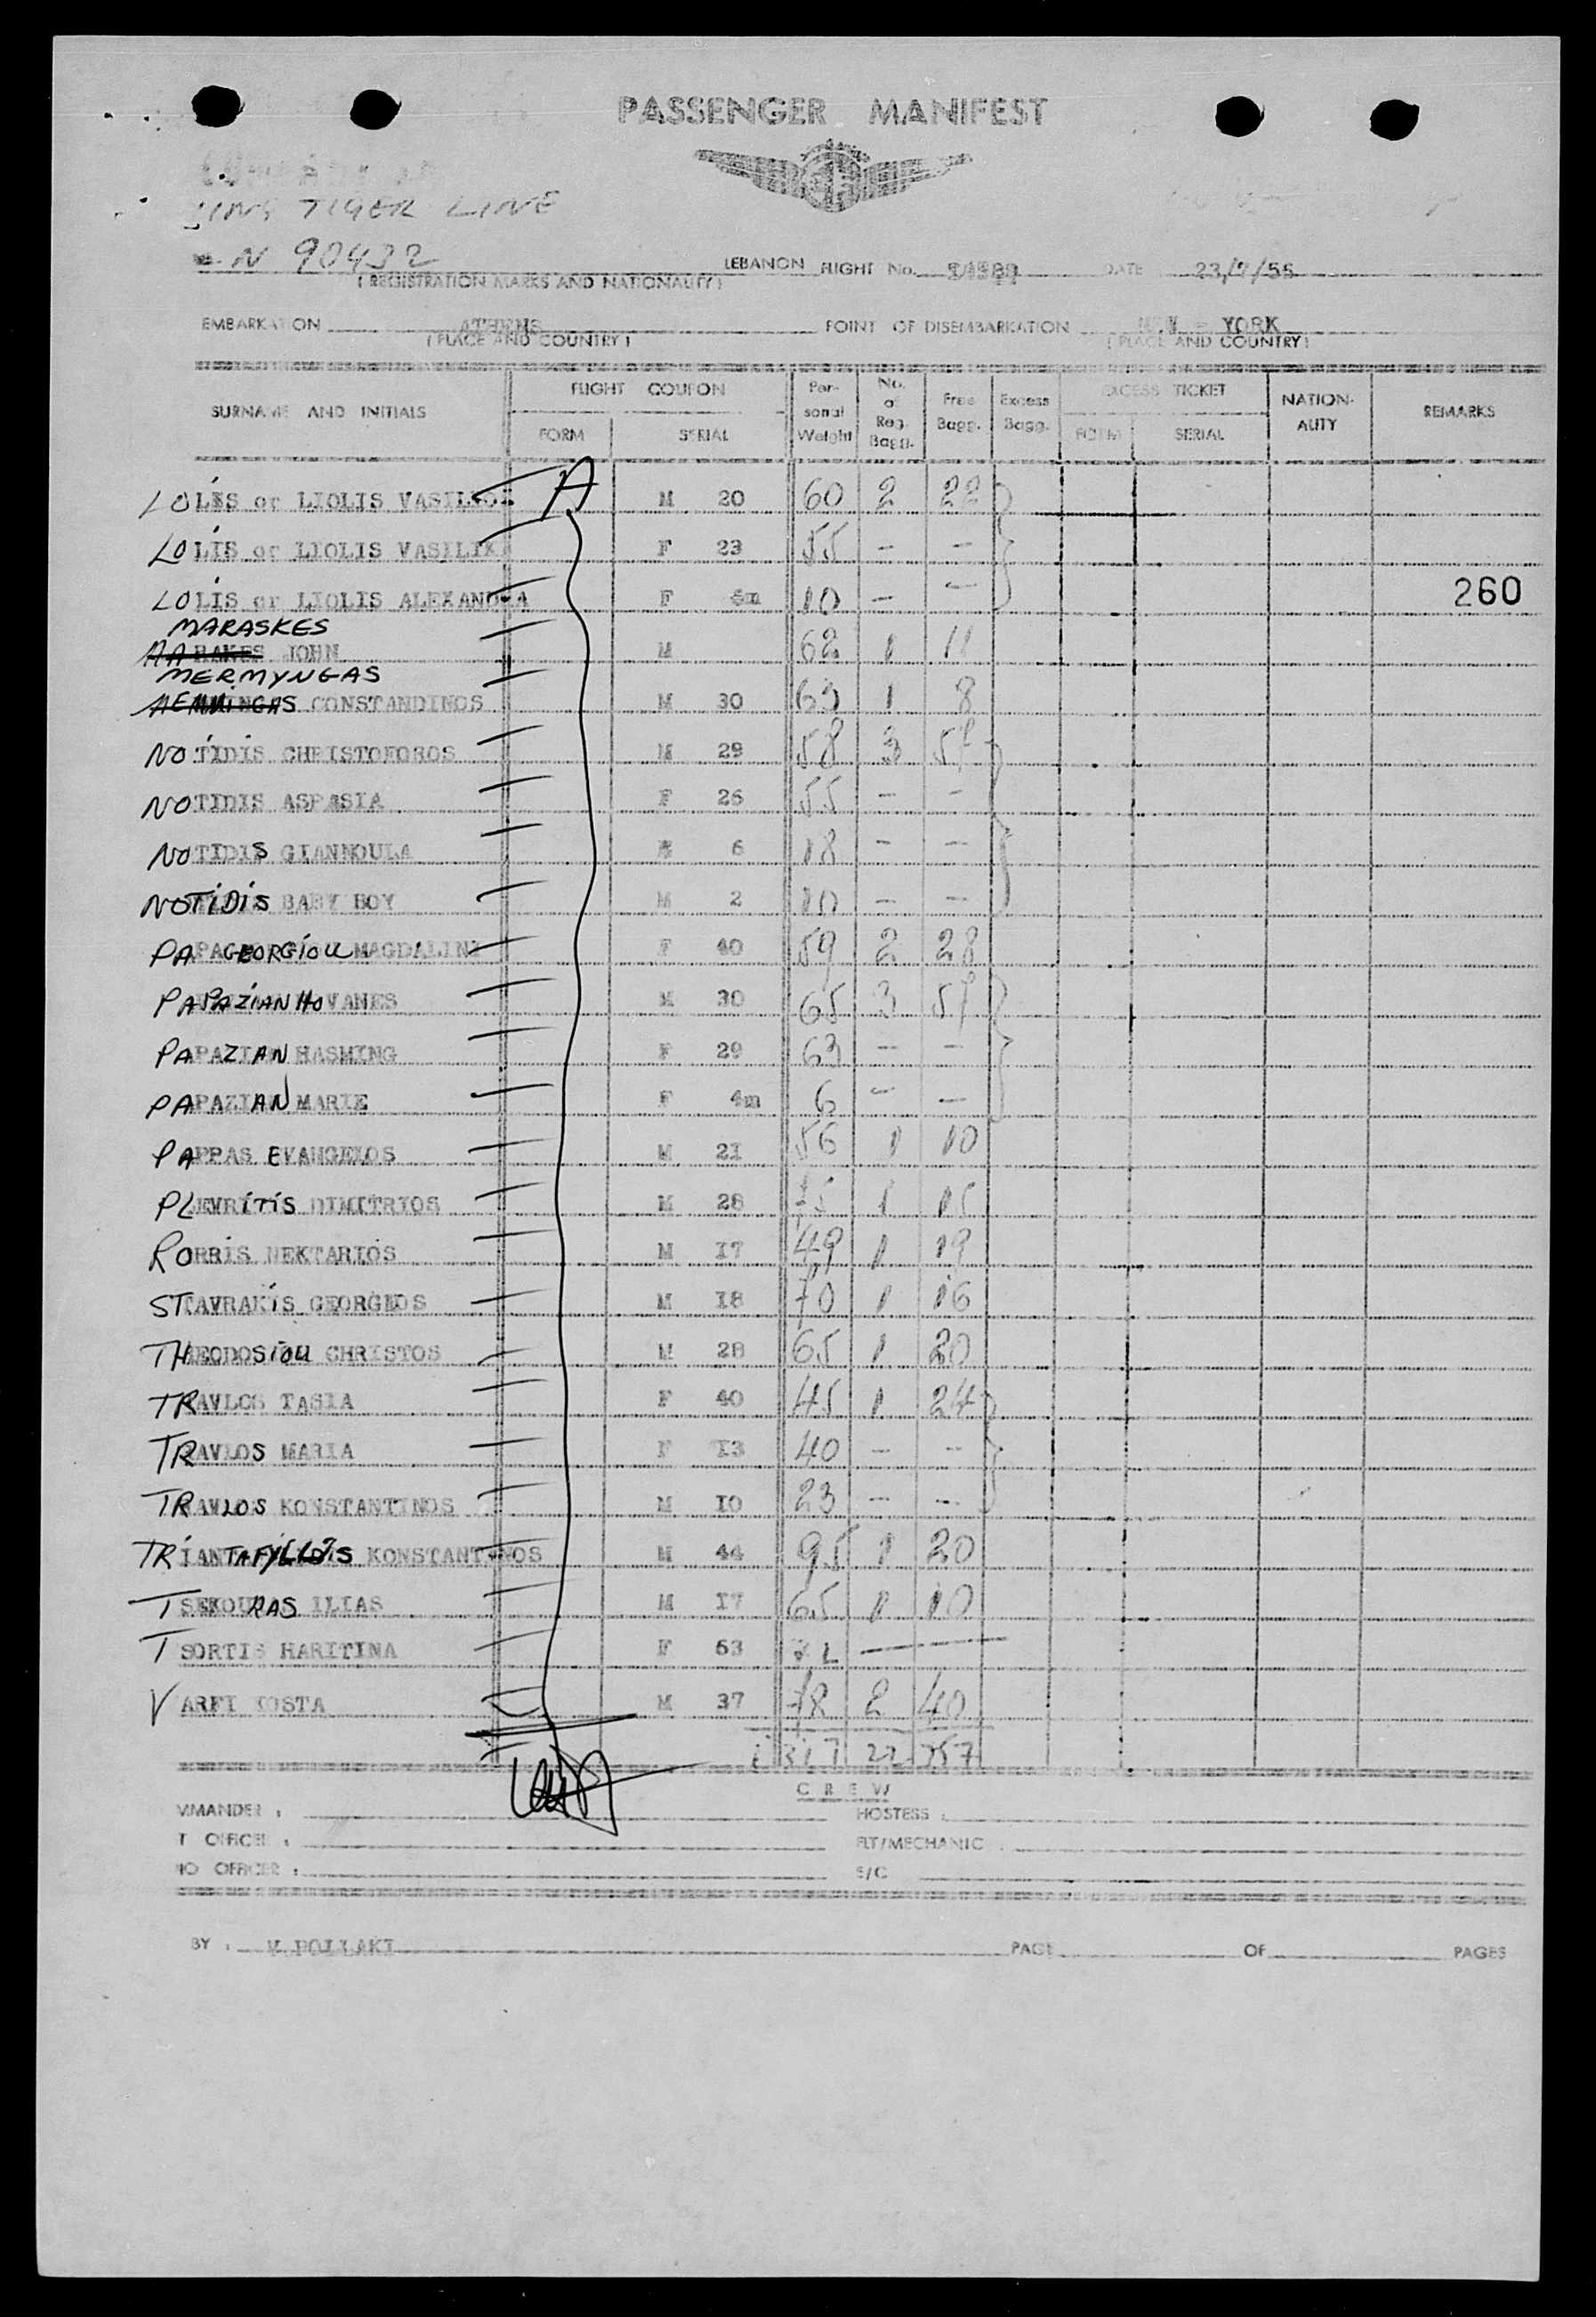 PASSENGER MANIFEST
TIGER LINE
N 90432
LEBANON FLIGHT No. DATE 23/7/55
(REGISTRATION MARKS AND NATIONALITY)
EMBARKATION ATHENS POINT OF DISEMBARKATION NEW - YORK
(PLACE AND COUNTRY) (PLACE AND COUNTRY)
SURNAME AND INITIALS FLIGHT COUPON FORM SERIAL Per-sonal Weight No. of Reg. Bagg. Free Bagg. Excess Bagg. EXCESS TICKET FORM SERIAL NATION-ALITY REMARKS
LOLIS or LIOLIS VASILIOS A M 20 60 2 22
LOLIS or LIOLIS VASILIKI F 23 55 - -
LOLIS or LIOLIS ALEXANDRA F 6m 10 - - 260
MARASKES
JOHN M 62 1 11
MERMYNGAS
CONSTANDINOS M 30 63 1 8
NOTIDIS CHRISTOFOROS M 29 58 3 57
NOTIDIS ASPASIA F 26 55 - -
NOTIDIS GIANNOULA 6 18 - -
NOTIDIS BABY BOY M 2 10 - -
PAPAGEORGIOU MAGDALINI F 40 59 2 28
PAPAZIAN HOVANES M 30 65 3 57
PAPAZIAN HASMING F 29 63 - -
PAPAZIAN MARIE F 4m 6 - -
PAPPAS EVANGELOS M 21 56 1 10
PLEVRITIS DIMITRIOS M 28 75 1 15
RORRIS NEKTARIOS M 17 49 1 19
STAVRAKIS GEORGIOS M 18 70 1 16
THEODOSIOU CHRISTOS M 28 65 1 20
TRAVLOS TASIA F 40 45 1 24
TRAVLOS MARIA F 13 40 - -
TRAVLOS KONSTANTINOS M 10 23 - -
TRIANTAFYLLDIS KONSTANTINOS M 44 95 1 20
TSEKOURAS ILIAS M 17 65 1 10
TSORTIS HARITINA F 63 - -
VARFI KOSTA M 37 78 2 40
1317 22 357
CREW
MMANDER : HOSTESS :
T OFFICER : FLT/MECHANIC :
ND OFFICER : S/C
BY : V.POLLAKI PAGE OF PAGES